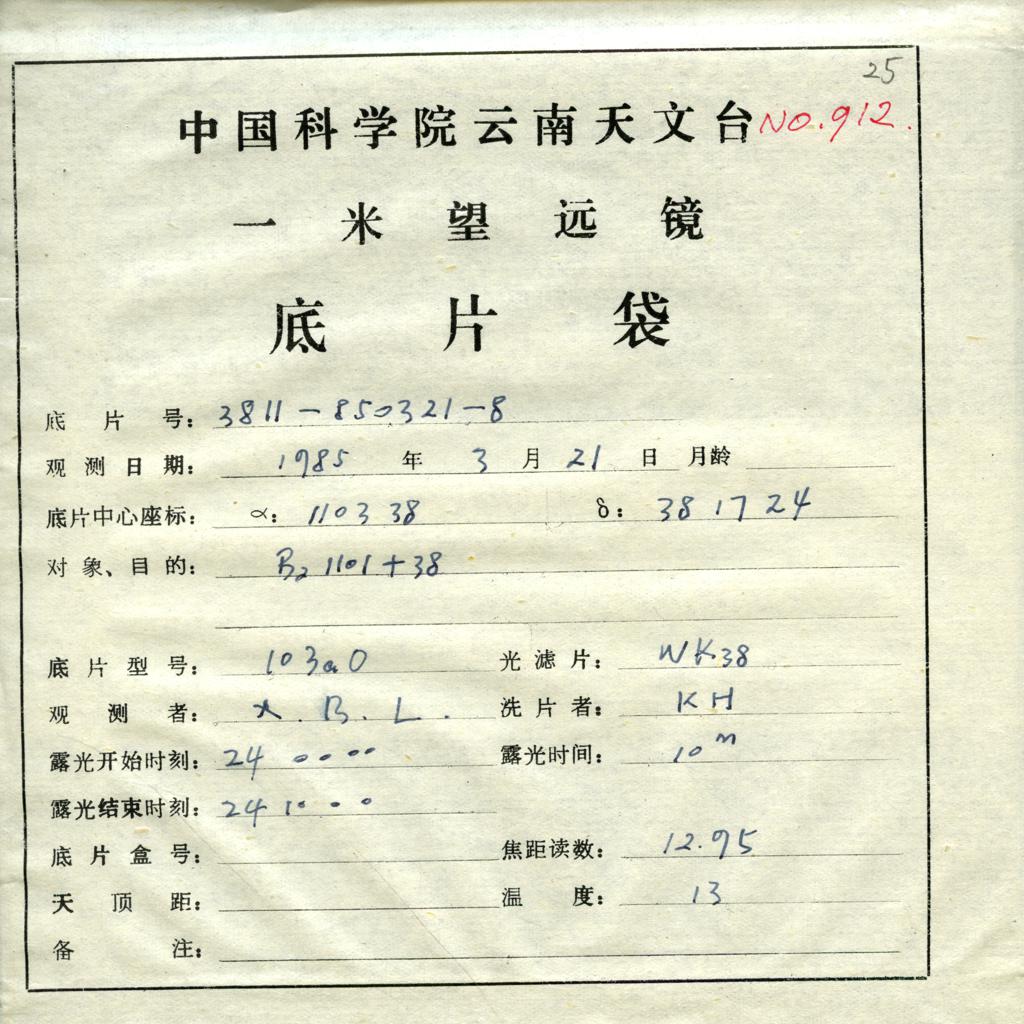 25
中国科学院云南天文台 NO.912.
一米望远镜
底片袋
底片号: 3811-850321-8
观测日期: 1985 年 3 月 21 日 月龄
底片中心座标: α: 110338 δ: 38 17 24
对象、目的: B2 1101+38
底片型号: 103aO 光滤片: WK38
观测者: X.B.L. 洗片者: KH
露光开始时刻: 24 0000 露光时间: 10m
露光结束时刻: 24 1000
底片盒号: 焦距读数: 12.95
天顶距: 温度: 13
备注: